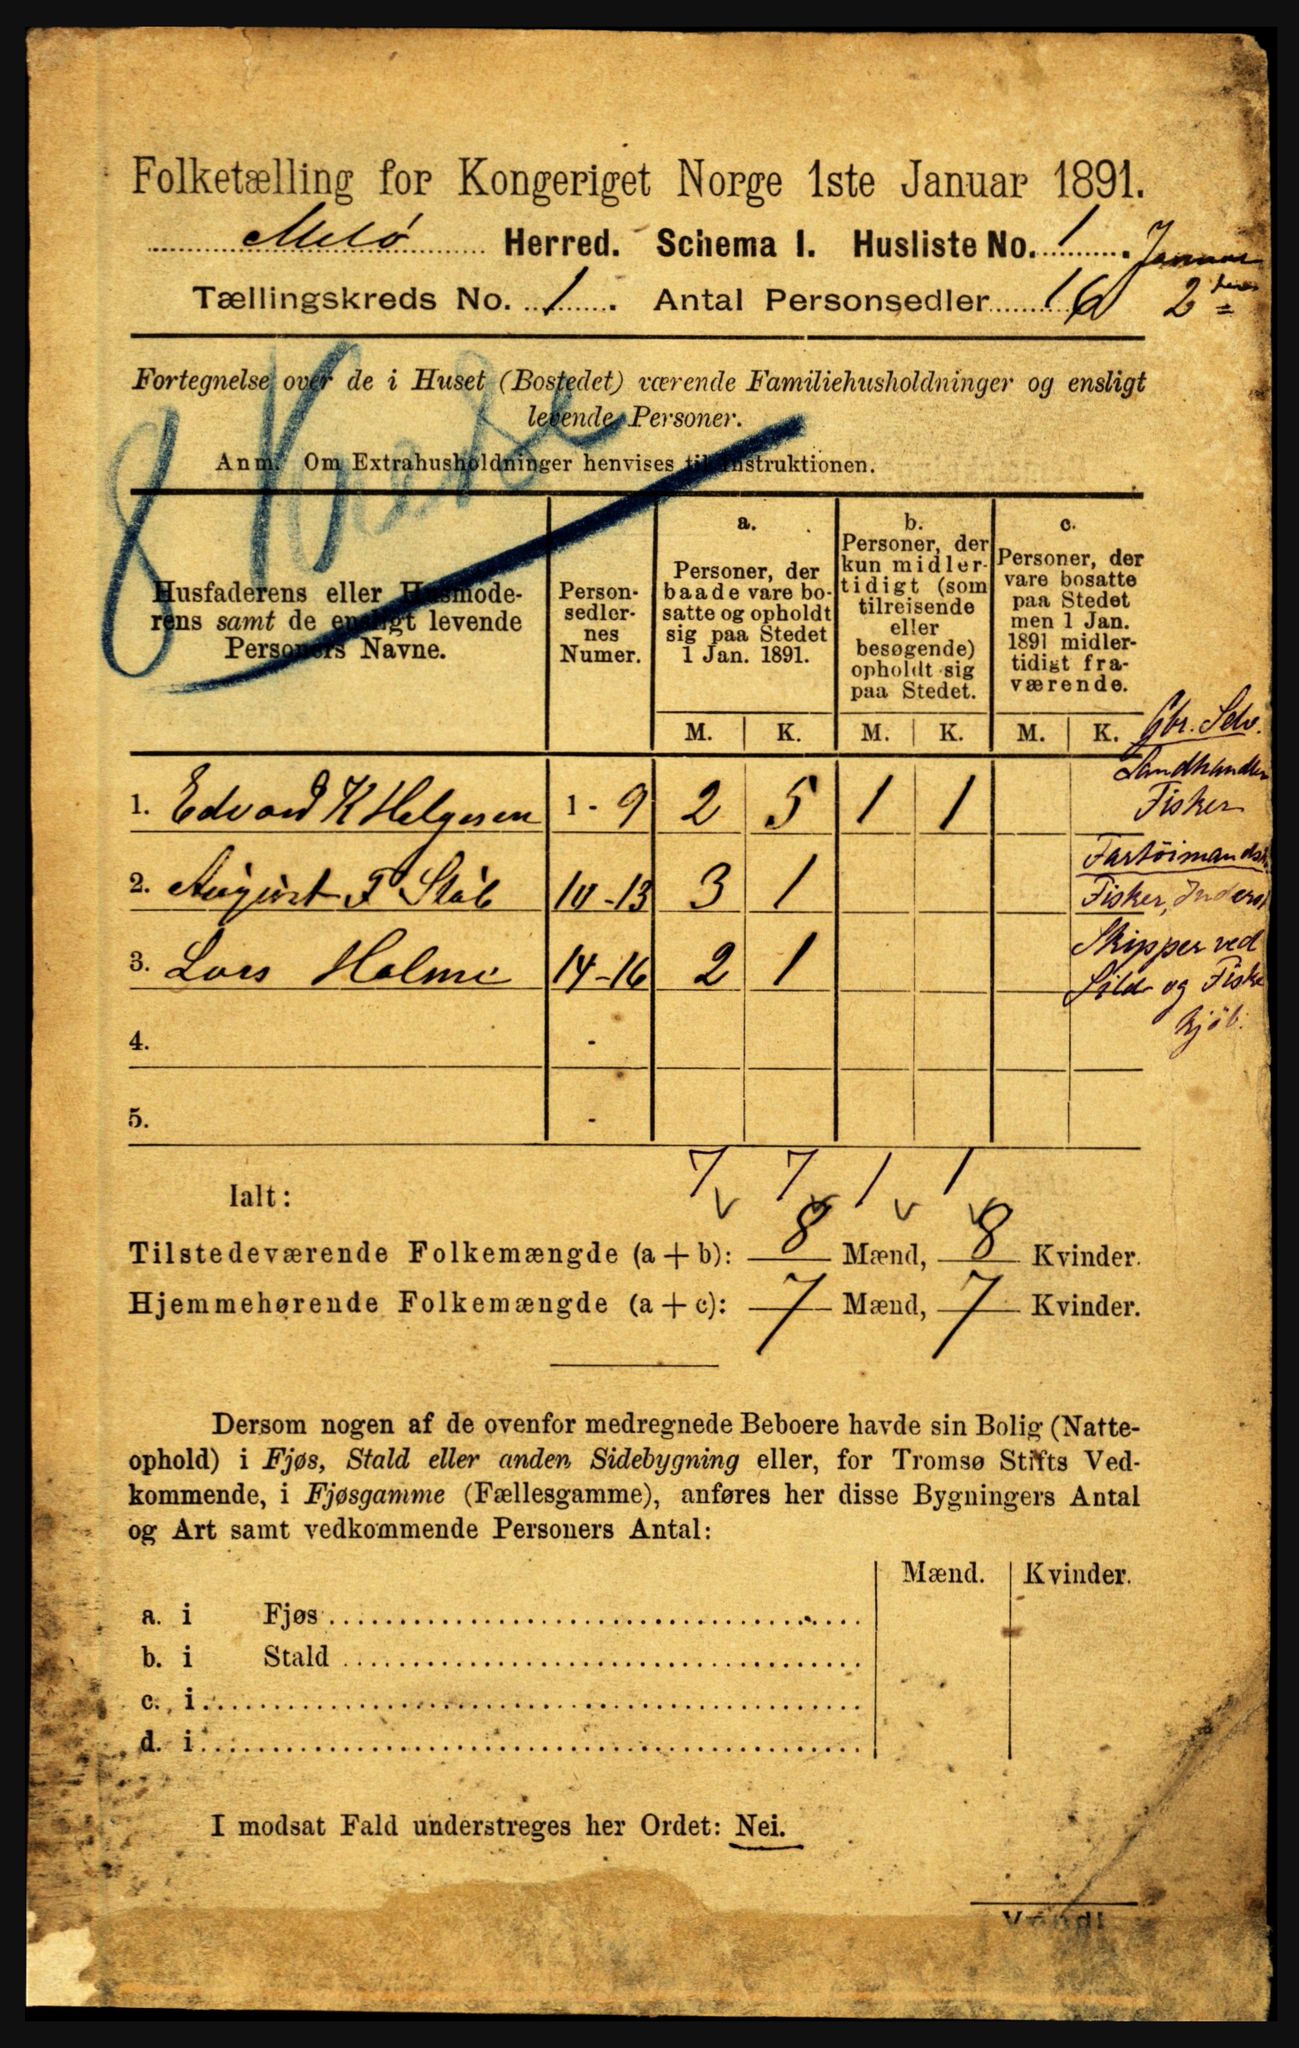 Folketælling for Kongeriget Norge 1ste Januar 1891.
Melø Herred. Schema I. Husliste No. 1. Januar
Tællingskreds No. 1. Antal Personsedler 16 2
8 Kreds
Fortegnelse over de i Huset (Bostedet) værende Familiehusholdninger og ensligt
levende Personer.
Anm. Om Extrahusholdninger henvises til Instruktionen.
Husfaderens eller Husmode-
rens samt de ensligt levende
Personers Navne.
Person-
sedler-
nes
Numer.
a.
Personer, der
baade vare bo-
satte og opholdt
sig paa Stedet
1 Jan. 1891.
b.
Personer, der
kun midler-
tidigt (som
tilreisende
eller
besøgende)
opholdt sig
paa Stedet.
c.
Personer, der
vare bosatte
paa Stedet
men 1 Jan.
1891 midler-
tidigt fra-
værende.
M. K. M. K. M. K.
Gbr. Selv.
Landhandler
1. Edvard K Helgesen 1 - 9 2 5 1 1 Fisker
Fartøimandsk
2. August F Støb 10-13 3 1 Fisker,
Skipper ved
3. Lars Holmi 14-16 2 1 Sild og Fiske
kjøb.
4. -
5. -
7 7 1 1
Ialt:
Tilstedeværende Folkemængde (a + b): 8 Mænd, 8 Kvinder.
Hjemmehørende Folkemængde (a + c): 7 Mænd, 7 Kvinder.
Dersom nogen af de ovenfor medregnede Beboere havde sin Bolig (Natte-
ophold) i Fjøs, Stald eller anden Sidebygning eller, for Tromsø Stifts Ved-
kommende, i Fjøsgamme (Fællesgamme), anføres her disse Bygningers Antal
og Art samt vedkommende Personers Antal:
Mænd. Kvinder.
a. i Fjøs
b. i Stald
c. i
d. i
I modsat Fald understreges her Ordet: Nei.